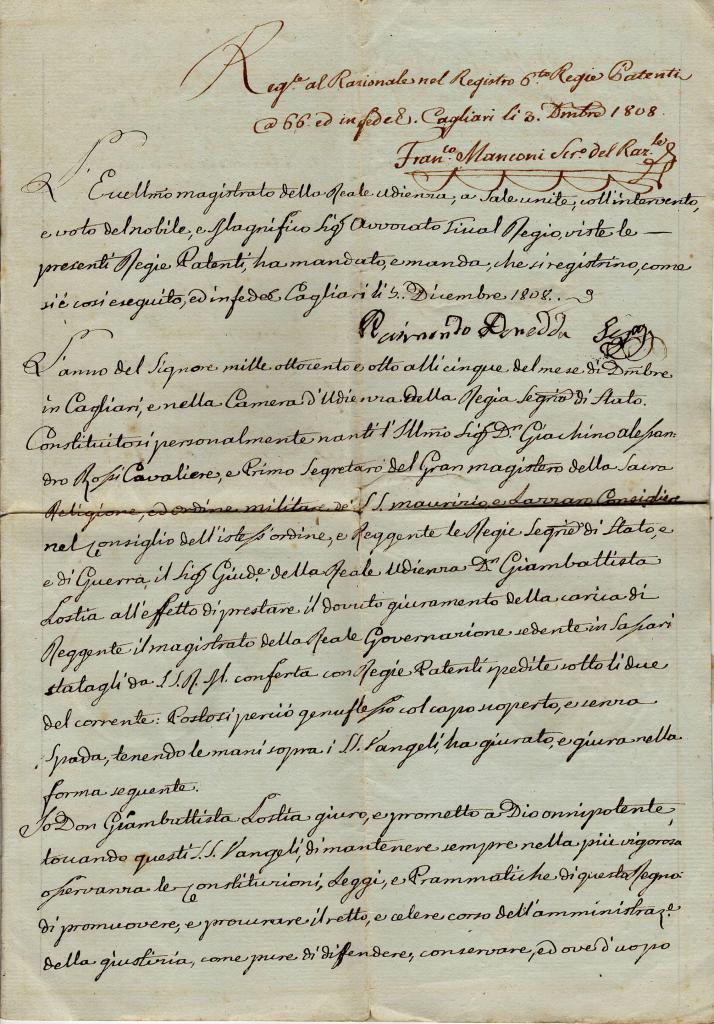 Reg.te al Razionale nel Registro 6.to Regie Patenti
@ 66. ed in fede &. Cagliari li 3. Dmbre 1808.
Fran.co Manconi Scr.o del Raz.le
L' Eccellmo magistrato della Reale Udienza, a Sale unite, coll'intervento,
e voto del nobile, e Magnifico Sig.r Avvocato Fiscal Regio, viste le —
presenti Regie Patenti, ha mandato, e manda, che si registrino, come
si è così eseguito, ed in fede &. Cagliari li 5. Dicembre 1808.
Raimondo Doneddu Seg.ro
L'anno del Signore mille ottocento e otto alli cinque del mese di Dmbre
in Cagliari, e nella Camera d'Udienza della Regia Segria di Stato.
Constituitosi personalmente nanti l'Illmo Sig.r D.n Giachino alessan-
dro Rossi Cavaliere, e Primo Segretaro del Gran magistero della Sacra
Religione, ed ordine militare de' S.S. maurizio, e Lazzaro Consigliere
nel Consiglio dell'istess'ordine, e Reggente le Regie Segrie di Stato, e
e di Guerra, il Sig.r Giud.e della Reale Udienza D.n Giambattista
Lostia all'effetto di prestare il dovuto giuramento della carica di
Reggente il magistrato della Reale Governazione sedente in Sassari
statagli da S.S.R.M. conferta con Regie Patenti spedite sotto li due
del corrente: Postosi perciò genuflesso col capo scoperto, e senza
Spada, tenendo le mani sopra i S.S. Vangeli, ha giurato, e giura nella
forma seguente.
Io Don Giambattista Lostia giuro, e prometto a Dio onnipotente
toccando questi S.S. Vangeli, di mantenere sempre nella più vigorosa
osservanza le Constituzioni, Leggi, e Prammatiche di questo Regno:
di promuovere, e procurare il retto, e celere corso dell'amministraz.e
della giustizia, come pure di diffendere, conservare, ed ove d'uopo